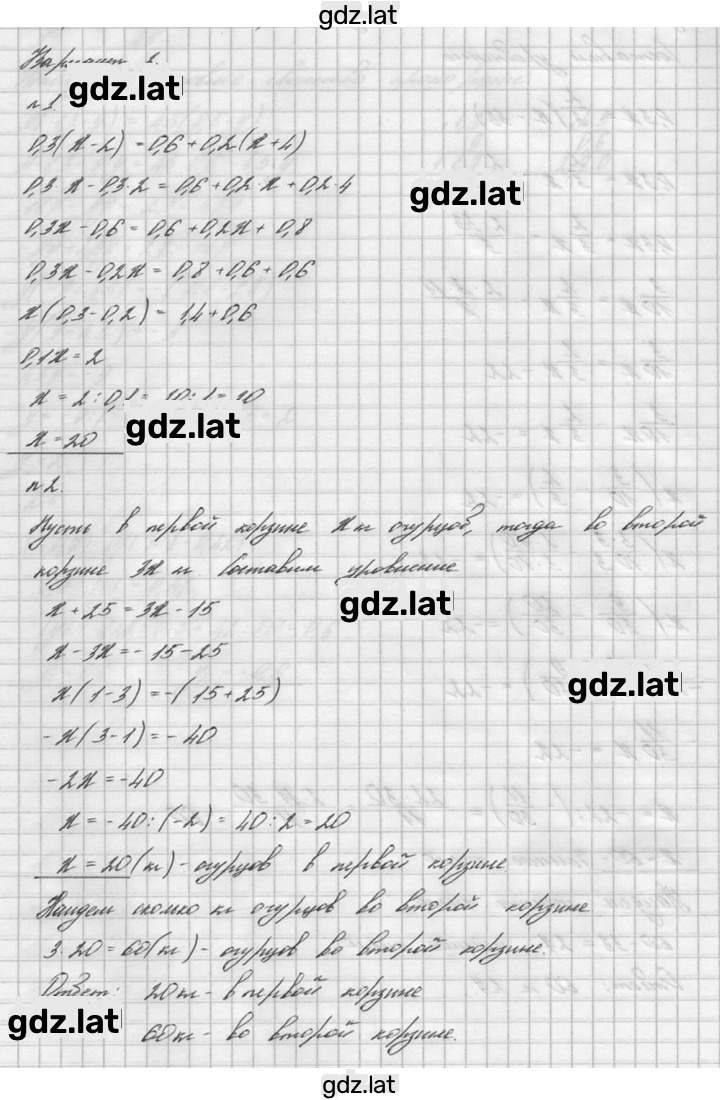 gdz.lat
Вариант 2.
gdz.lat
n 1
0,3(x-2) = 0,6+0,2(x+4)
0,3·x-0,3·2 = 0,6+0,2·x+0,2·4
gdz.lat
0,3x-0,6 = 0,6+0,2x+0,8
0,3x-0,2x = 0,8+0,6+0,6
x(0,3-0,2) = 1,4+0,6
0,1x = 2
x = 2:0,1=
x = 20
gdz.lat
n 2.
Пусть в первой корзине x кг огурцов, тогда во второй
корзине 3x кг. Составим уравнение
gdz.lat
x+25 = 3x-15
x-3x = -15-25
gdz.lat
x(1-3) = -(15+25)
-x(3-1) = -40
-2x = -40
x = -40:(-2) = 40:2 = 20
x = 20(кг) - огурцов в первой корзине
Найдем сколко кг огурцов во второй корзине
3·20 = 60(кг) - огурцов во второй корзине.
Ответ: 20кг - в первой корзине
gdz.lat
60кг - во второй корзине.
gdz.lat